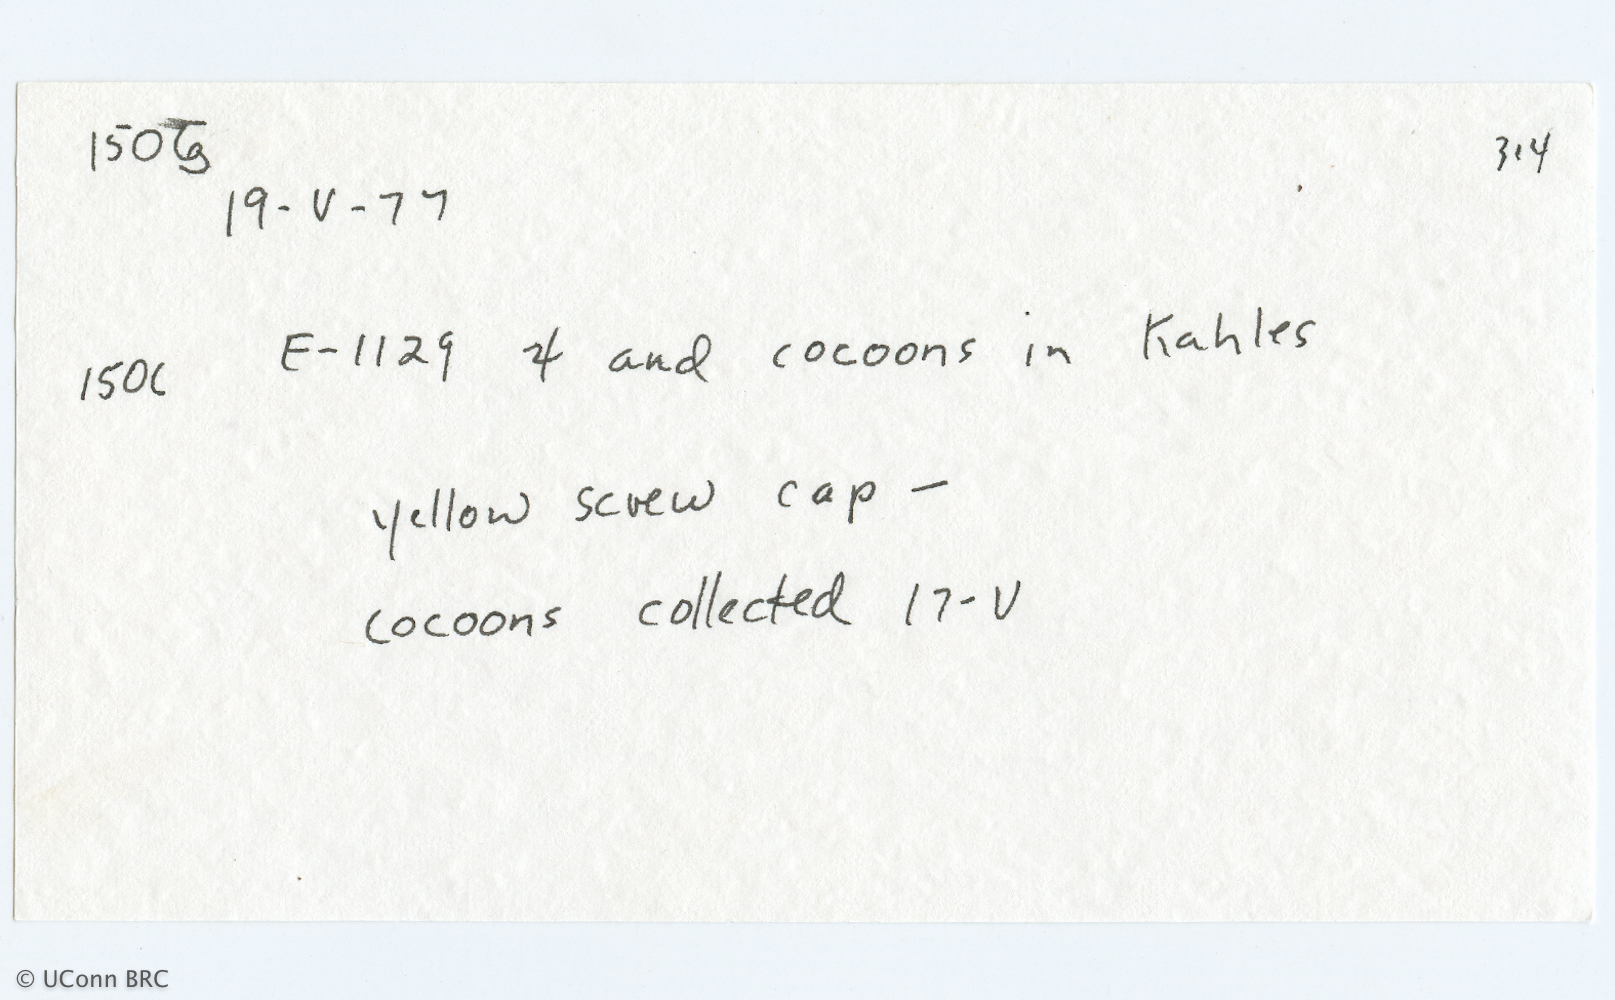 314
19-V-77
E-1129 4 and cocoons in Kahles
150C
yellow screw cap —
cocoons collected 17-V
© UConn BRC